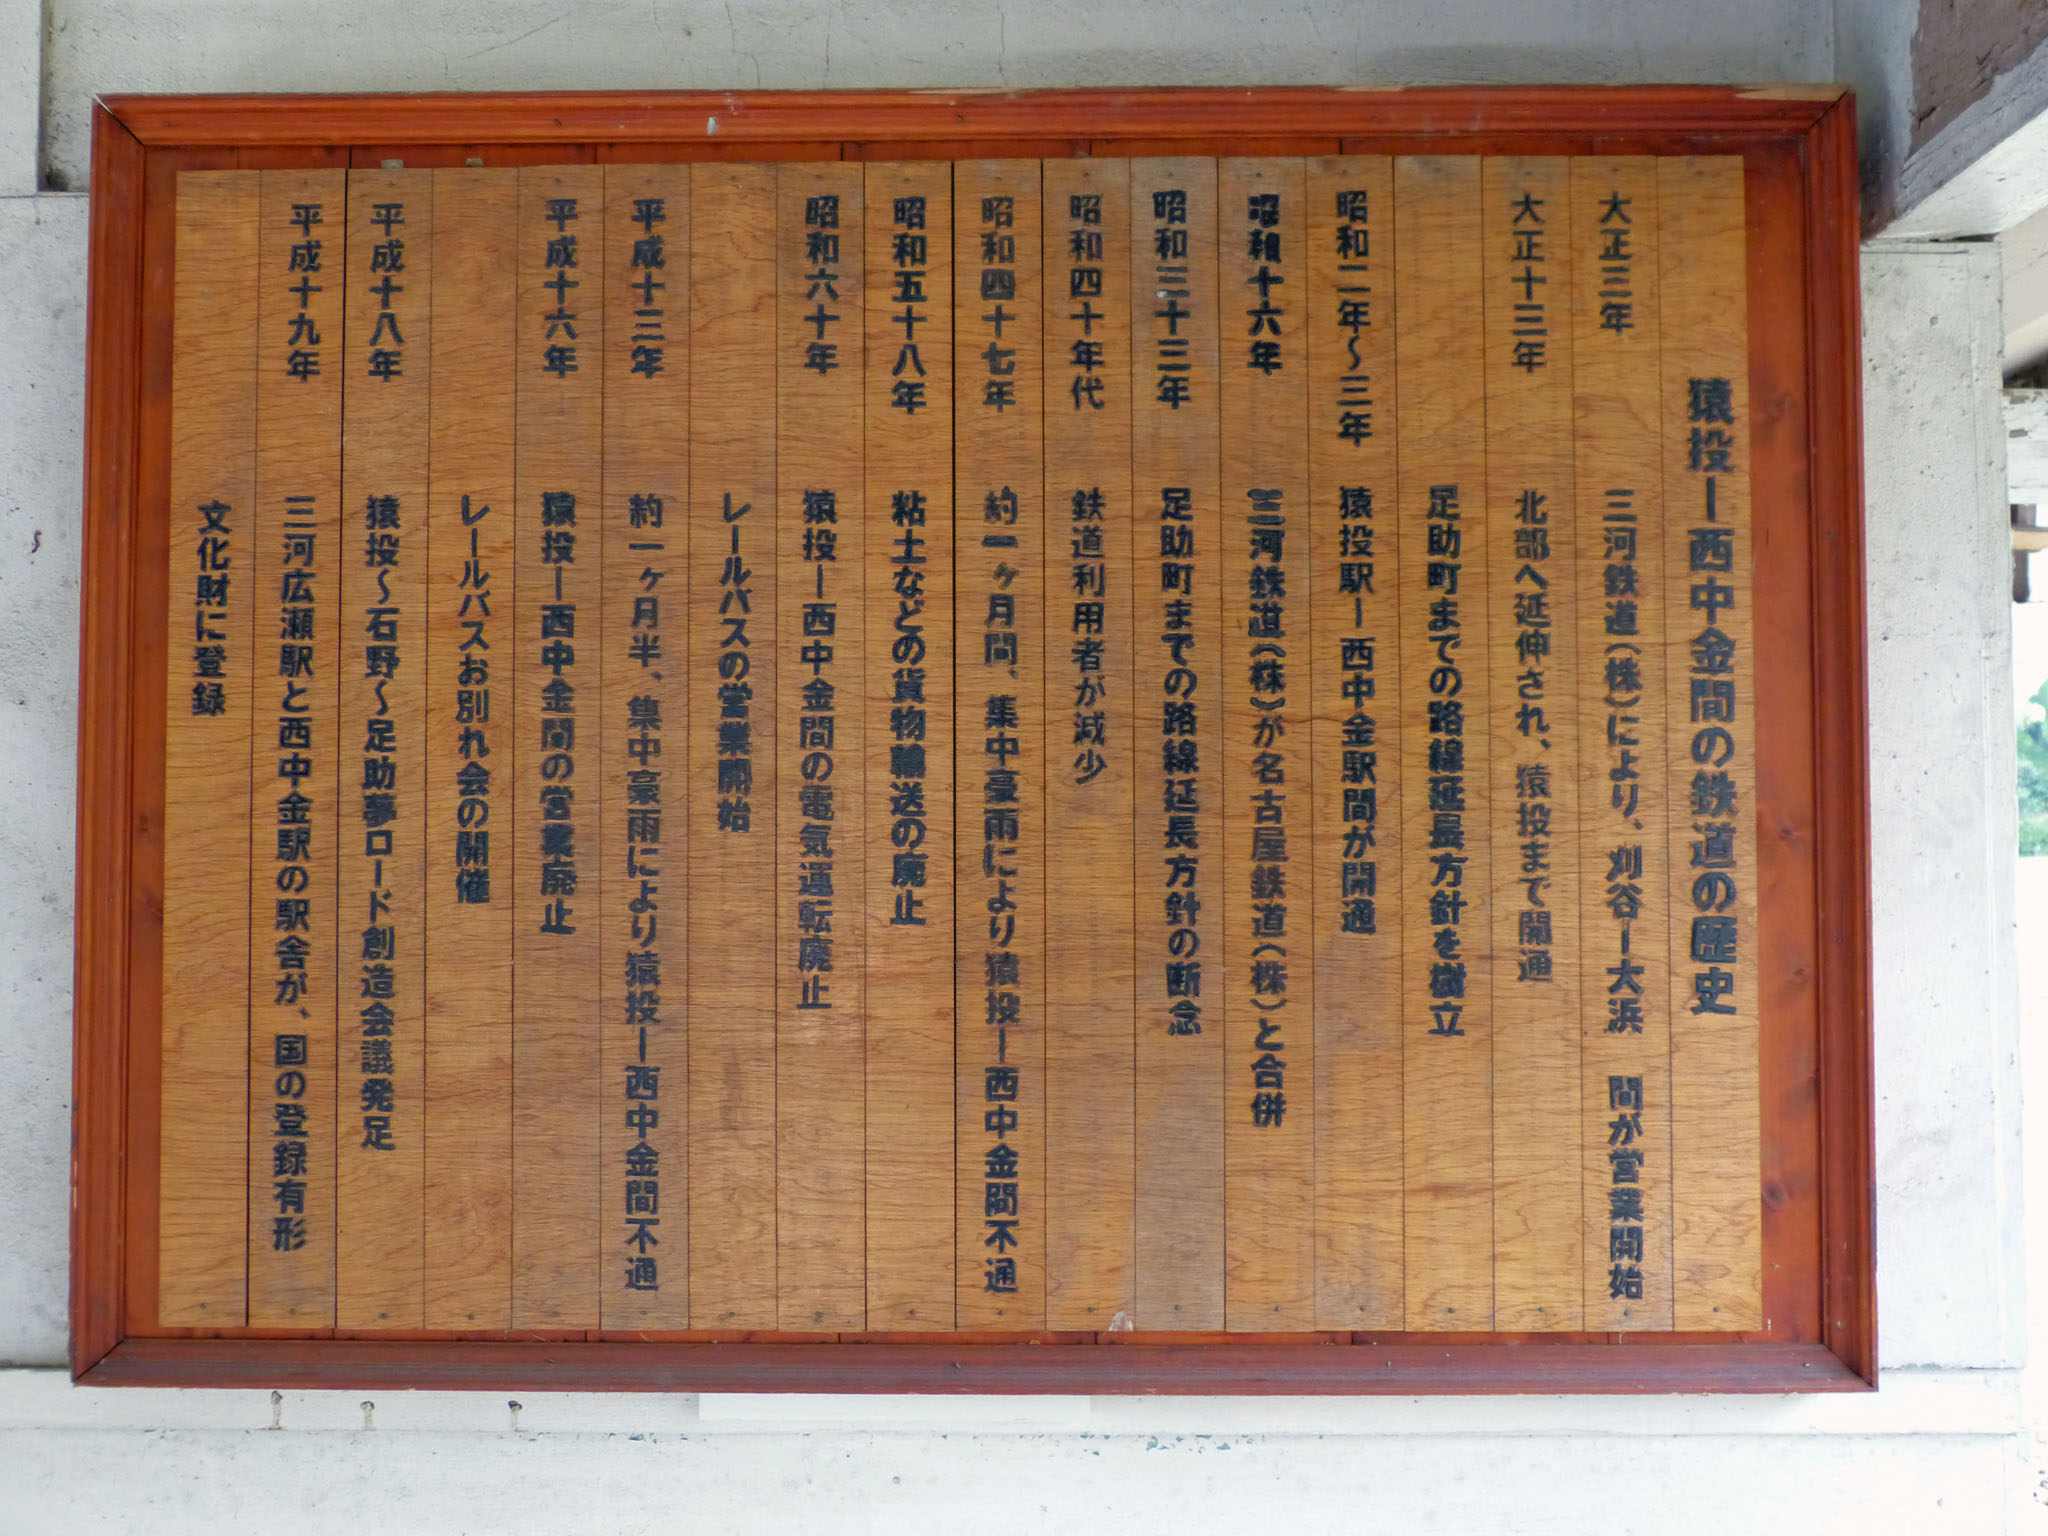 猿投ー西中金間の鉄道の歴史
大正三年 三河鉄道(株)により、刈谷ー大浜 間が営業開始
大正十三年 北部へ延伸され、猿投まで開通
足助町までの路線延長方針を樹立
昭和二年〜三年 猿投駅ー西中金駅間が開通
昭和十六年 三河鉄道(株)が名古屋鉄道(株)と合併
昭和三十三年 足助町までの路線延長方針の断念
昭和四十年代 鉄道利用者が減少
昭和四十七年 約一ヶ月間、集中豪雨により猿投ー西中金間不通
昭和五十八年 粘土などの貨物輸送の廃止
昭和六十年 猿投ー西中金間の電気運転廃止
レールバスの営業開始
平成十三年 約一ヶ月半、集中豪雨により猿投ー西中金間不通
平成十六年 猿投ー西中金間の営業廃止
レールバスお別れ会の開催
平成十八年 猿投〜石野〜足助夢ロード創造会議発足
平成十九年 三河広瀬駅と西中金駅の駅舎が、国の登録有形
文化財に登録